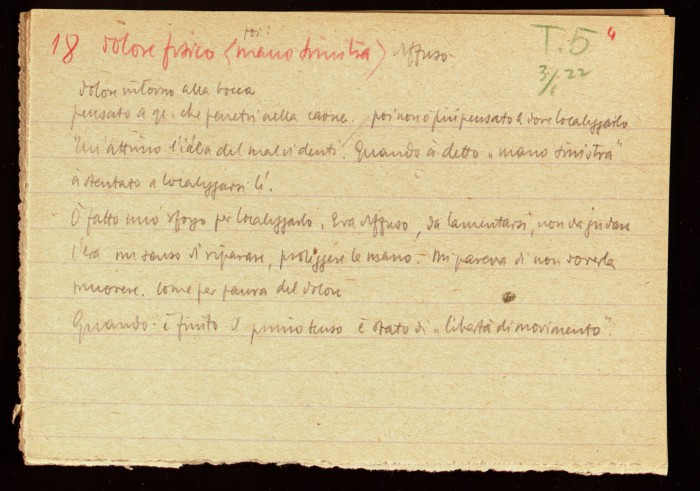 18 dolore fisico (poi: mano sinistra) diffuso. T.5 4
3/1 22
dolore intorno alla bocca
pensato a qc. che penetri nella carne. poi non ò più pensato a dove localizzarlo
Un'attimo l'idea del mal di denti. Quando à detto "mano sinistra"
à stentato a localizzarsi lì.
Ò fatto uno sforzo per localizzarlo. Era diffuso, da lamentarsi, non da gridare
C'era un senso di riparare, proteggere la mano. Mi pareva di non doverla
muovere. come per paura del dolore
Quando è finito il primo senso è stato di "libertà di movimento".